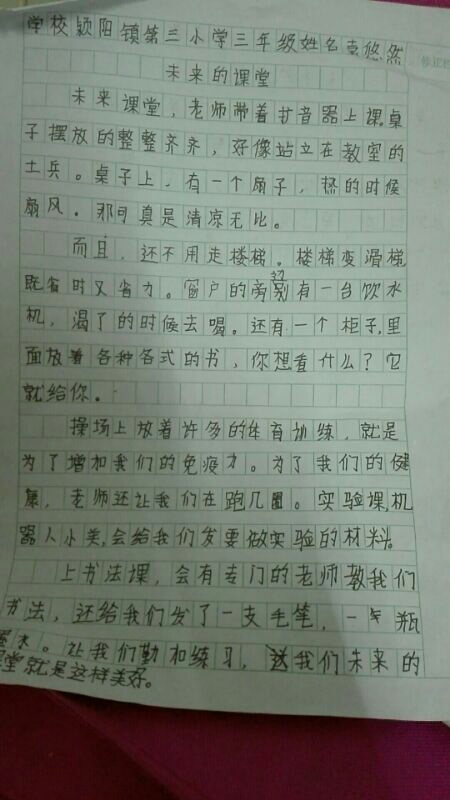 学校颍阳镇第三小学三年级姓名袁悠然
未来的课堂
未来课堂，老师带着扩音器上课。桌
子摆放的整整齐齐，好像站立在教室的
士兵。桌子上，有一个扇子，热的时候
扇风。那可真是清凉无比。
而且，还不用走楼梯。楼梯变滑梯，
既省时又省力。窗户的旁边有一台饮水
机，渴了的时候去喝。还有一个柜子，里
面放着各种各式的书，你想看什么？它
就给你。
操场上放着许多的体育训练，就是
为了增加我们的免疫力。为了我们的健
康，老师还让我们在跑几圈。实验课，机
器人小美，会给我们发要做实验的材料。
上书法课，会有专门的老师教我们
书法，还给我们发了一支毛笔，一瓶
墨水。让我们勤加练习，这我们未来的
课堂就是这样美好。